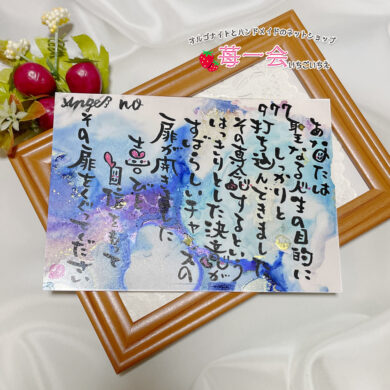 オルゴナイトとハンドメイドのネットショップ
苺一会 いちごいちえ
angel no
97
あなたは
聖なる人生の目的に
しっかりと
打ち込んできました
その専念するという
はっきりとした決意が
すばらしいチャンスの
扉が開きました
喜びと
自信をもって
その扉をくぐってください